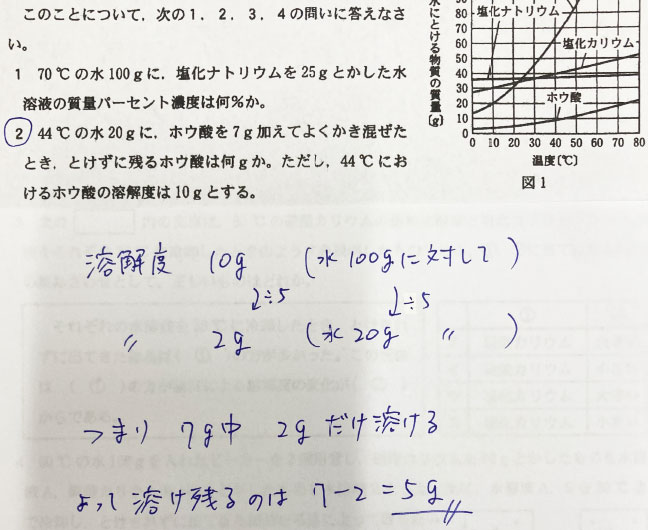 このことについて，次の1，2，3，4の問いに答えなさ
い。
1 70℃の水100gに，塩化ナトリウムを25gとかした水
溶液の質量パーセント濃度は何%か。
2 44℃の水20gに，ホウ酸を7g加えてよくかき混ぜた
とき，とけずに残るホウ酸は何gか。ただし，44℃にお
けるホウ酸の溶解度は10gとする。
水にとける物質の質量〔g〕
80
70
60
50
40
30
20
10
0
塩化ナトリウム
塩化カリウム
ホウ酸
0 10 20 30 40 50 60 70 80
温度〔℃〕
図1
溶解度 10g （水100gに対して）
↓÷5 ↓÷5
〃 2g （水20g 〃 ）
つまり 7g中 2gだけ溶ける
よって溶け残るのは 7−2=5g